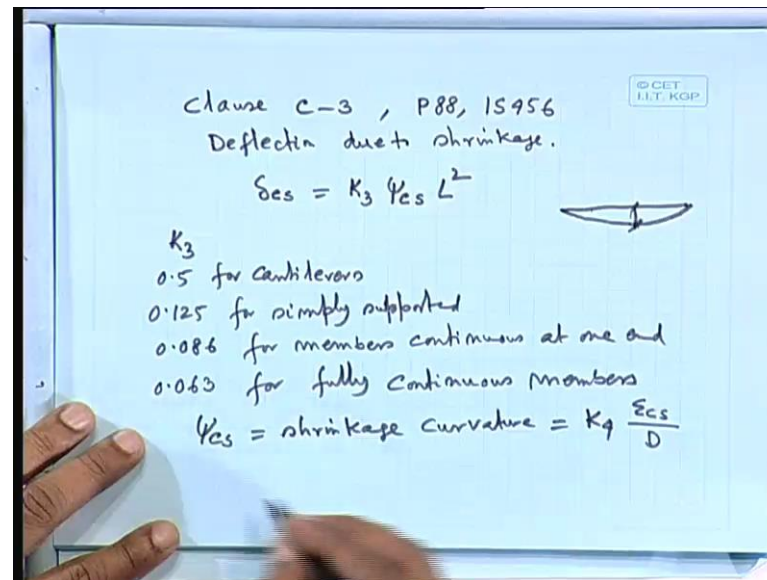 © CET
I.I.T. KGP
Clause C-3 , P88, IS456
Deflectin due to shrinkage.
δcs = K3 Ψcs L²
K3
0.5 for cantilevers
0.125 for simply supported
0.086 for members continuous at one end
0.063 for fully continuous members
Ψcs = shrinkage curvature = K4 εcs/D